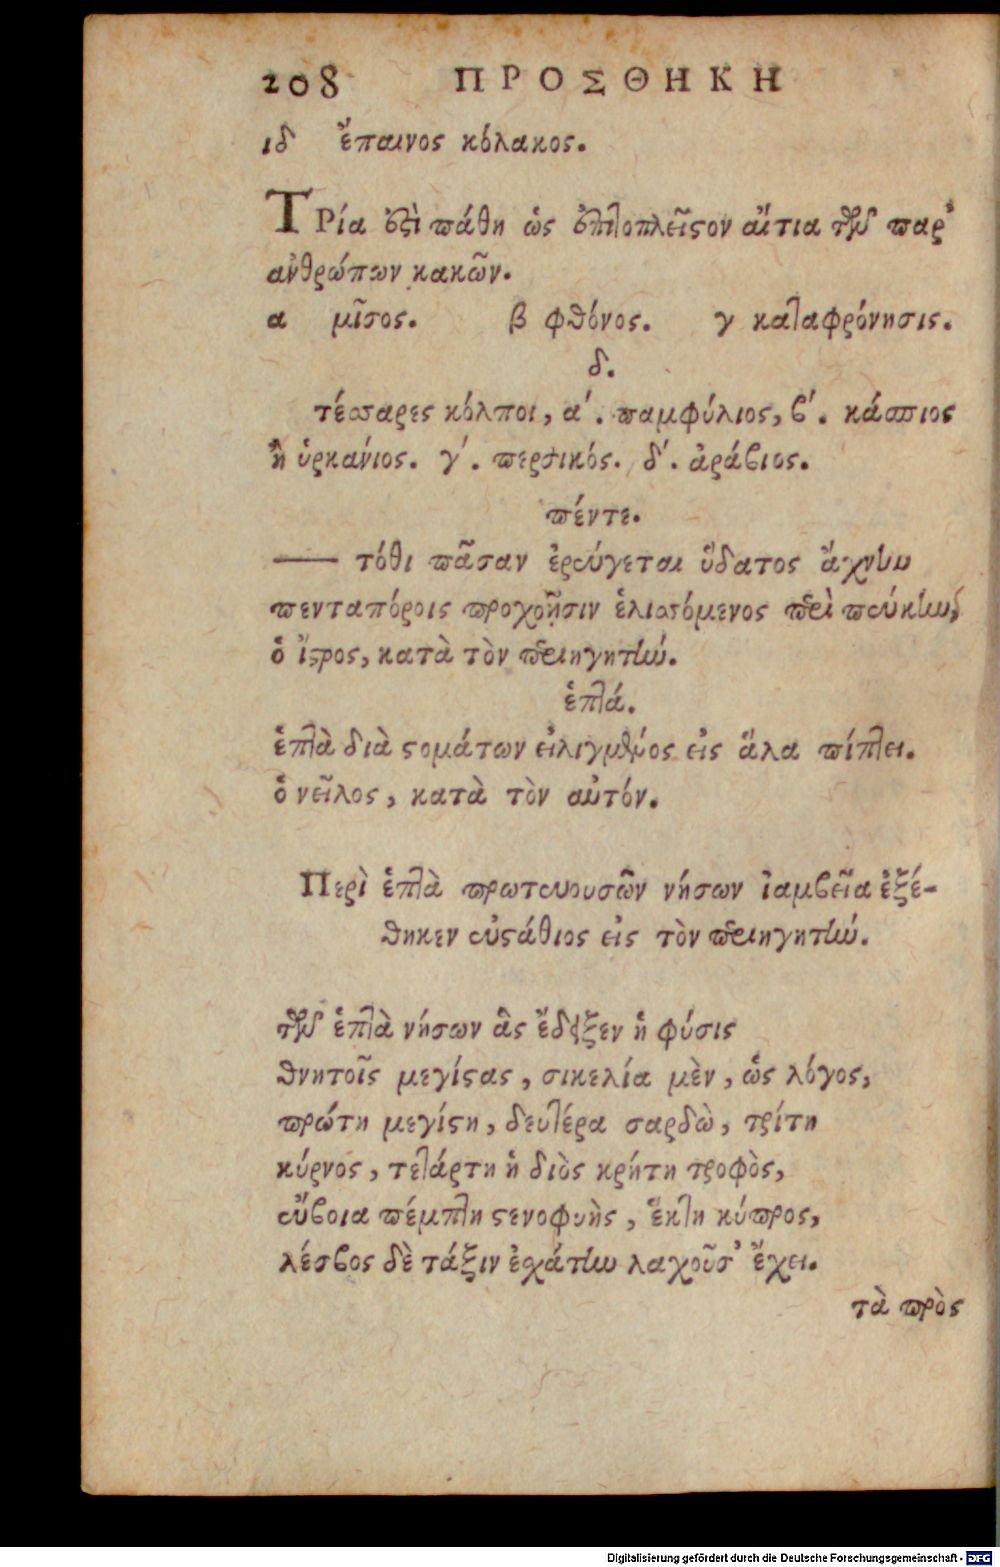 208 ΠΡΟΣΘΗΚΗ
ιδ ἔπαινος κόλακος.
Τρία ἐστὶ πάθη ὡς ἐπιτοπλεῖστον αἴτια τῶν παρ᾽
ἀνθρώπων κακῶν.
α μῖσος. β φθόνος. γ καταφρόνησις.
δ.
τέσσαρες κόλποι, α΄. παμφύλιος, β΄. κάσπιος
ἢ ὑρκάνιος. γ΄. περσικός. δ΄. ἀράβιος.
πέντε.
— τόθι πᾶσαν ἐρεύγεται ὕδατος ἄχνην
πενταπόροις προχοῇσιν ἑλισσόμενος περὶ πεύκην,
ὁ ἴστρος, κατὰ τὸν περιηγητήν.
ἑπτά.
ἑπτὰ διὰ στομάτων εἰλιγμένος εἰς ἅλα πίπτει.
ὁ νεῖλος, κατὰ τὸν αὐτόν.
Περὶ ἑπτὰ πρωτευουσῶν νήσων ἰαμβεῖα ἐξέ-
θηκεν εὐστάθιος εἰς τὸν περιηγητήν.
τῶν ἑπτὰ νήσων ἃς ἔδειξεν ἡ φύσις
θνητοῖς μεγίστας, σικελία μὲν, ὡς λόγος,
πρώτη μεγίστη, δευτέρα σαρδὼ, τρίτη
κύρνος, τετάρτη ἡ διὸς κρήτη τροφὸς,
εὔβοια πέμπτη στενοφυὴς, ἕκτη κύπρος,
λέσβος δὲ τάξιν ἐσχάτην λαχοῦσ᾽ ἔχει.
τὰ πρὸς
Digitalisierung gefördert durch die Deutsche Forschungsgemeinschaft - DFG